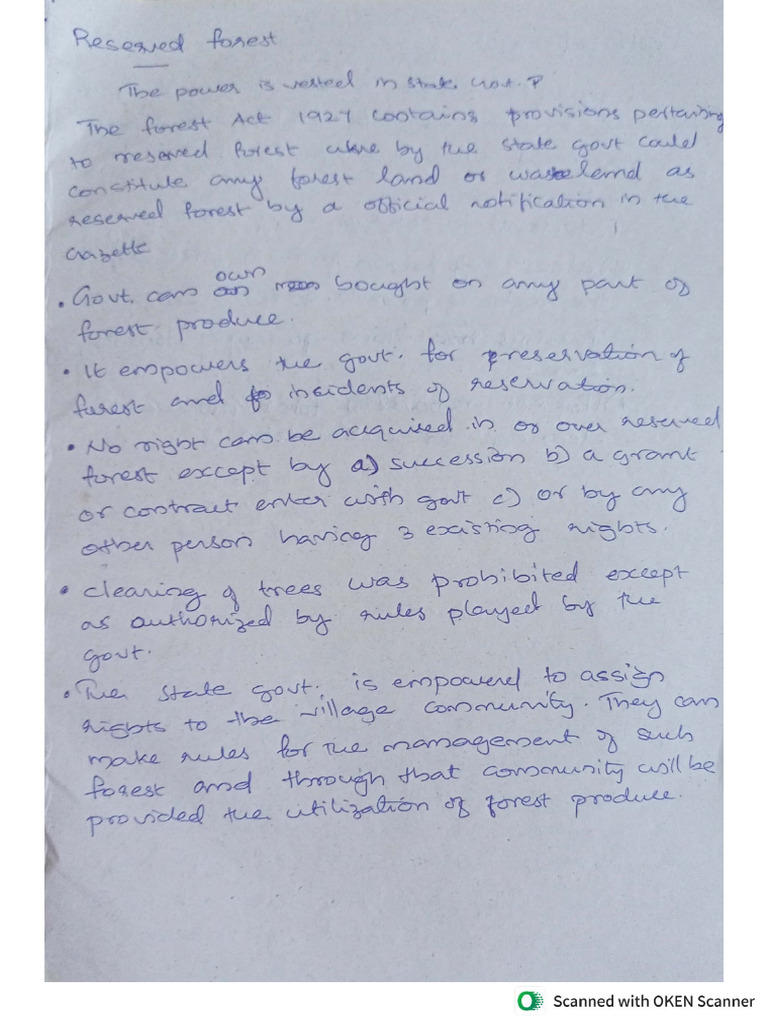 Reserved forest
The power is vested in state Govt.
The forest Act 1927 contains provisions pertaining
to reserved forest where by the state govt could
constitute any forest land or wasteland as
reserved forest by a official notification in the
Gazette
• Govt. can own bought on any part of
forest produce.
• It empowers the govt. for preservation of
forest and incidents of reservation.
• No right can be acquired in or over reserved
forest except by a) succession b) a grant
or contract enter with govt c) or by any
other person having existing rights.
• clearing of trees was prohibited except
as authorized by rules played by the
govt.
• The state govt. is empowered to assign
rights to the village community. They can
make rules for the management of such
forest and through that community will be
provided the utilization of forest produce.
Scanned with OKEN Scanner